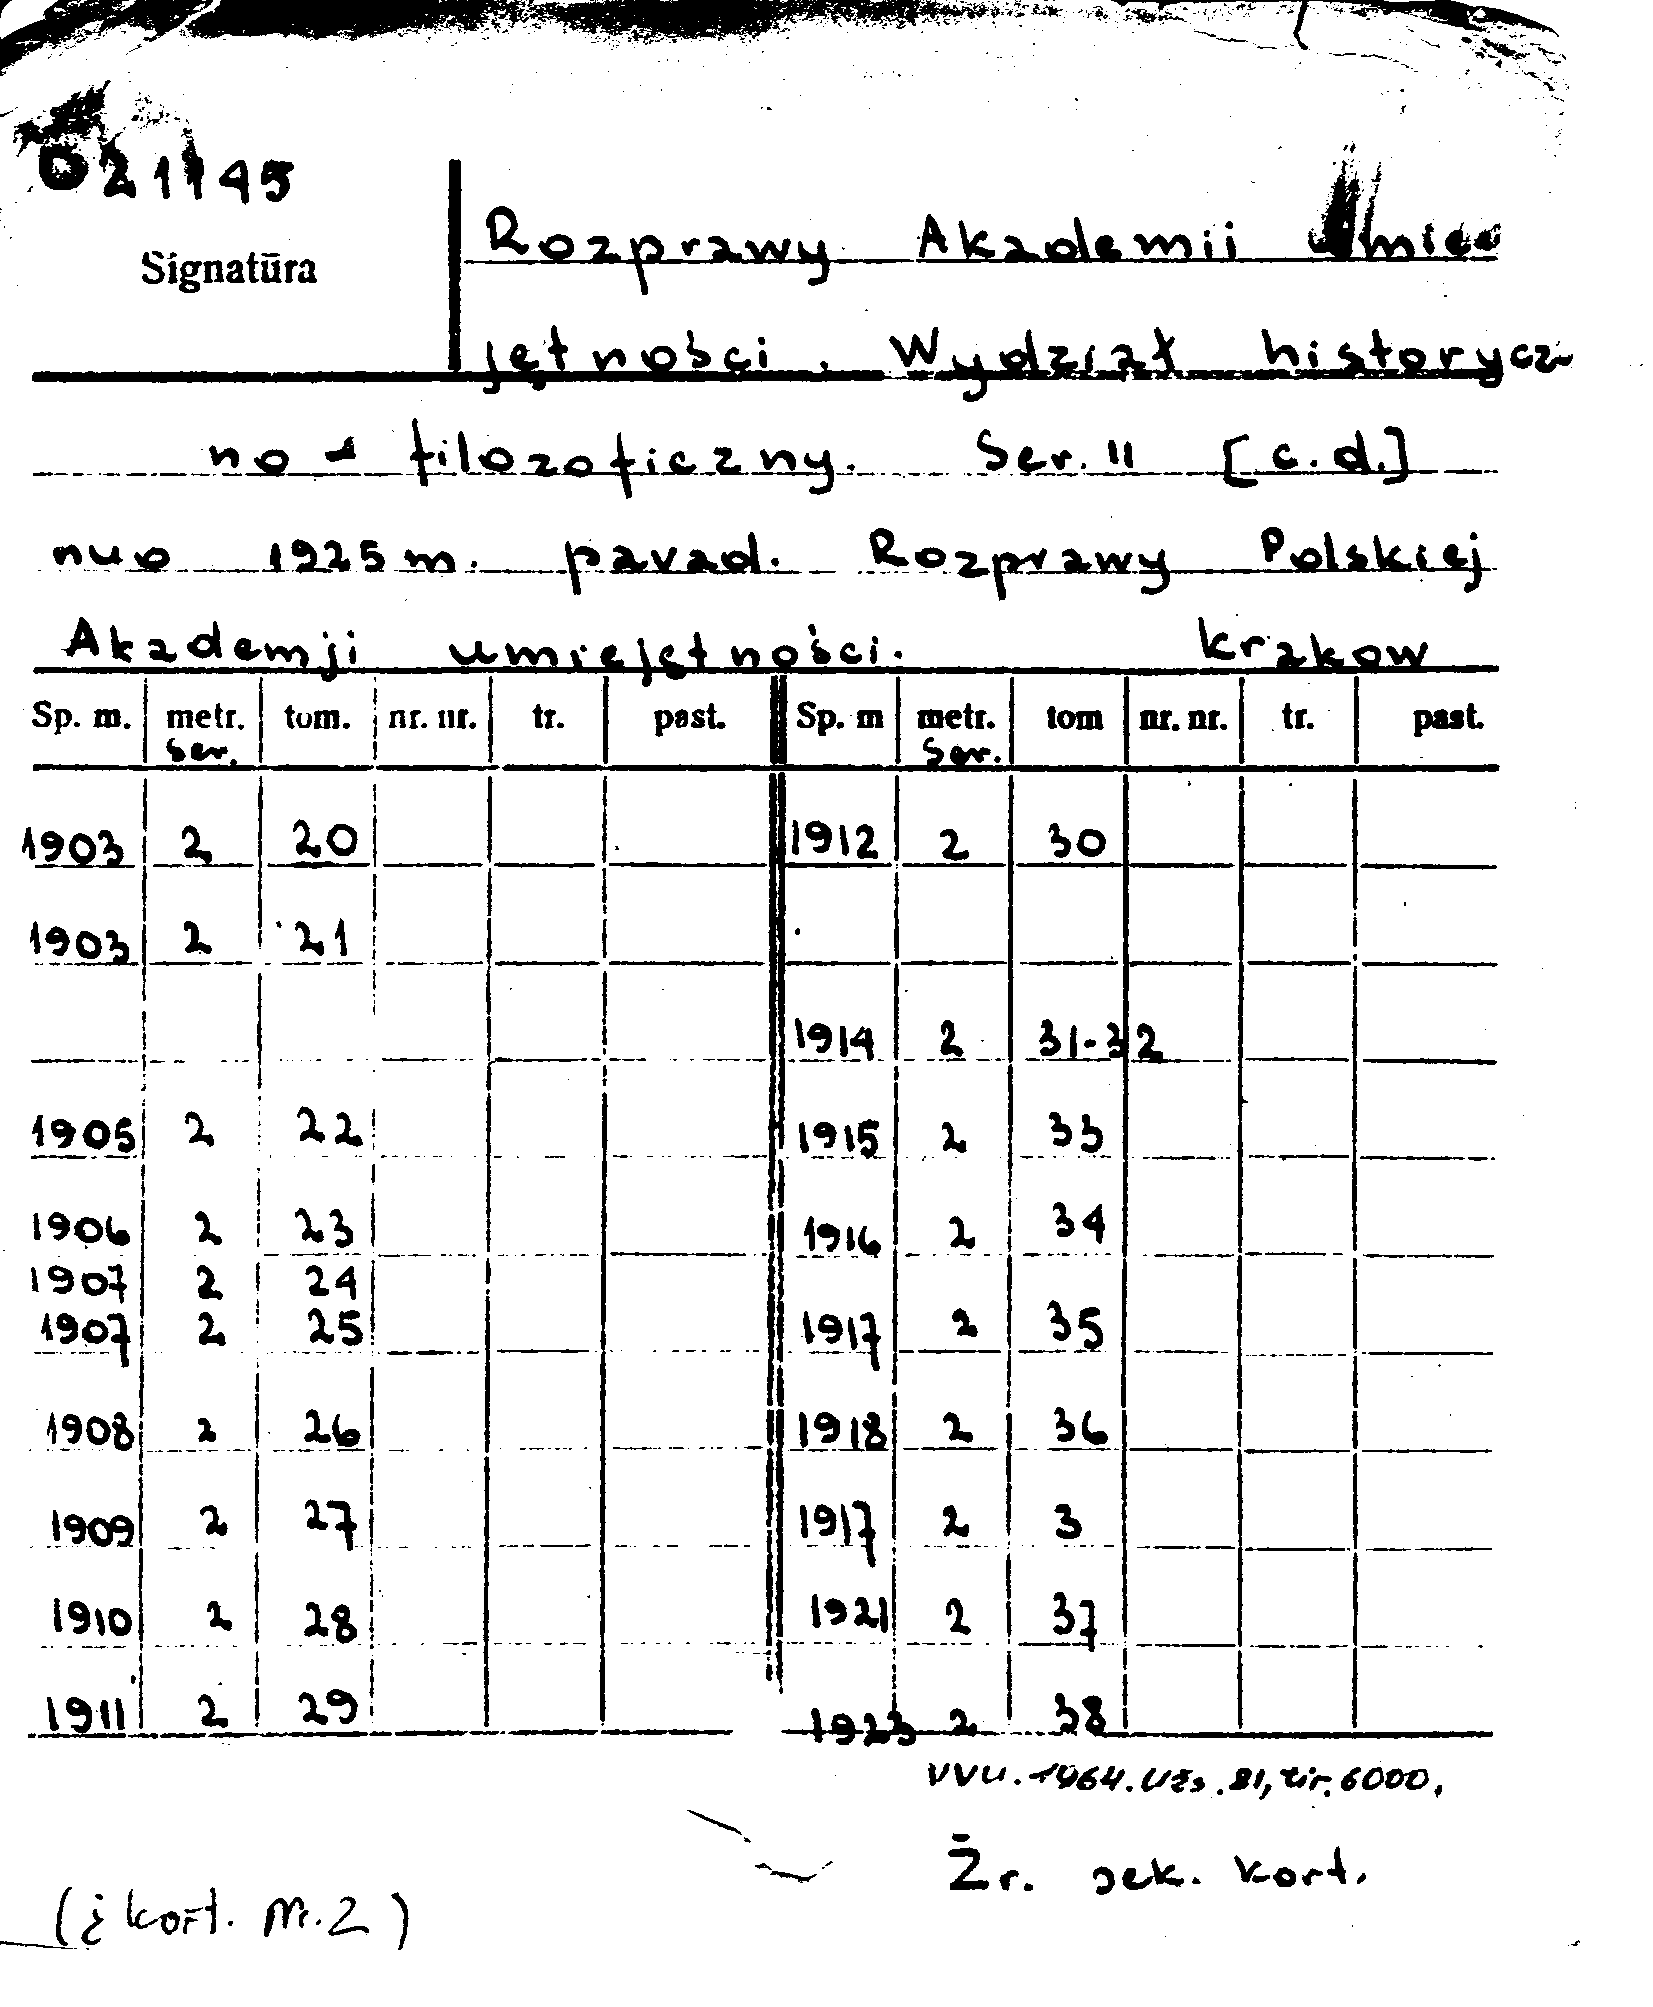 021145
Signatūra
Rozprawy Akademii Umie
jętności. Wydział historycz
no - filozoficzny. Ser. II [c.d.]
nuo 1925 m. pavad. Rozprawy Polskiej
Akademji umiejętności. Krakow
Sp. m. metr. tom. nr. nr. tr. past. Sp. m metr. tom nr. nr. tr. past.
ser. ser.
1903 2 20 1912 2 30
1903 2 21
1914 2 31-32
1905 2 22 1915 2 33
1906 2 23 1916 2 34
1907 2 24
1907 2 25 1917 2 35
1908 2 26 1918 2 36
1909 2 27 1917 2 3
1910 2 28 1921 2 37
1911 2 29 1923 2 38
VVU. 1964. Užs. 81, tir. 6000.
Žr. sek. kort.
(į kort. Nr. 2)